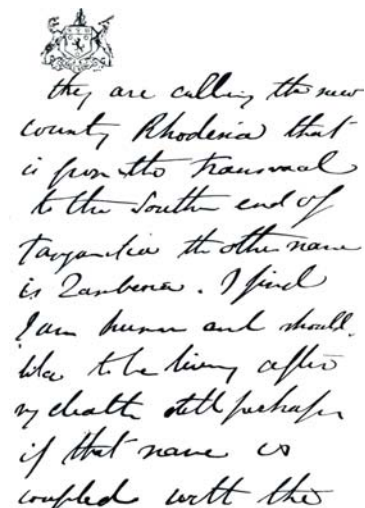 they are calling the new
county Rhodesia that
is from the Transvaal
to the South end of
Tanganika the other name
is Zambesia. I find
I am human and should
like to be living after
my death still perhaps
if that name is
coupled with the